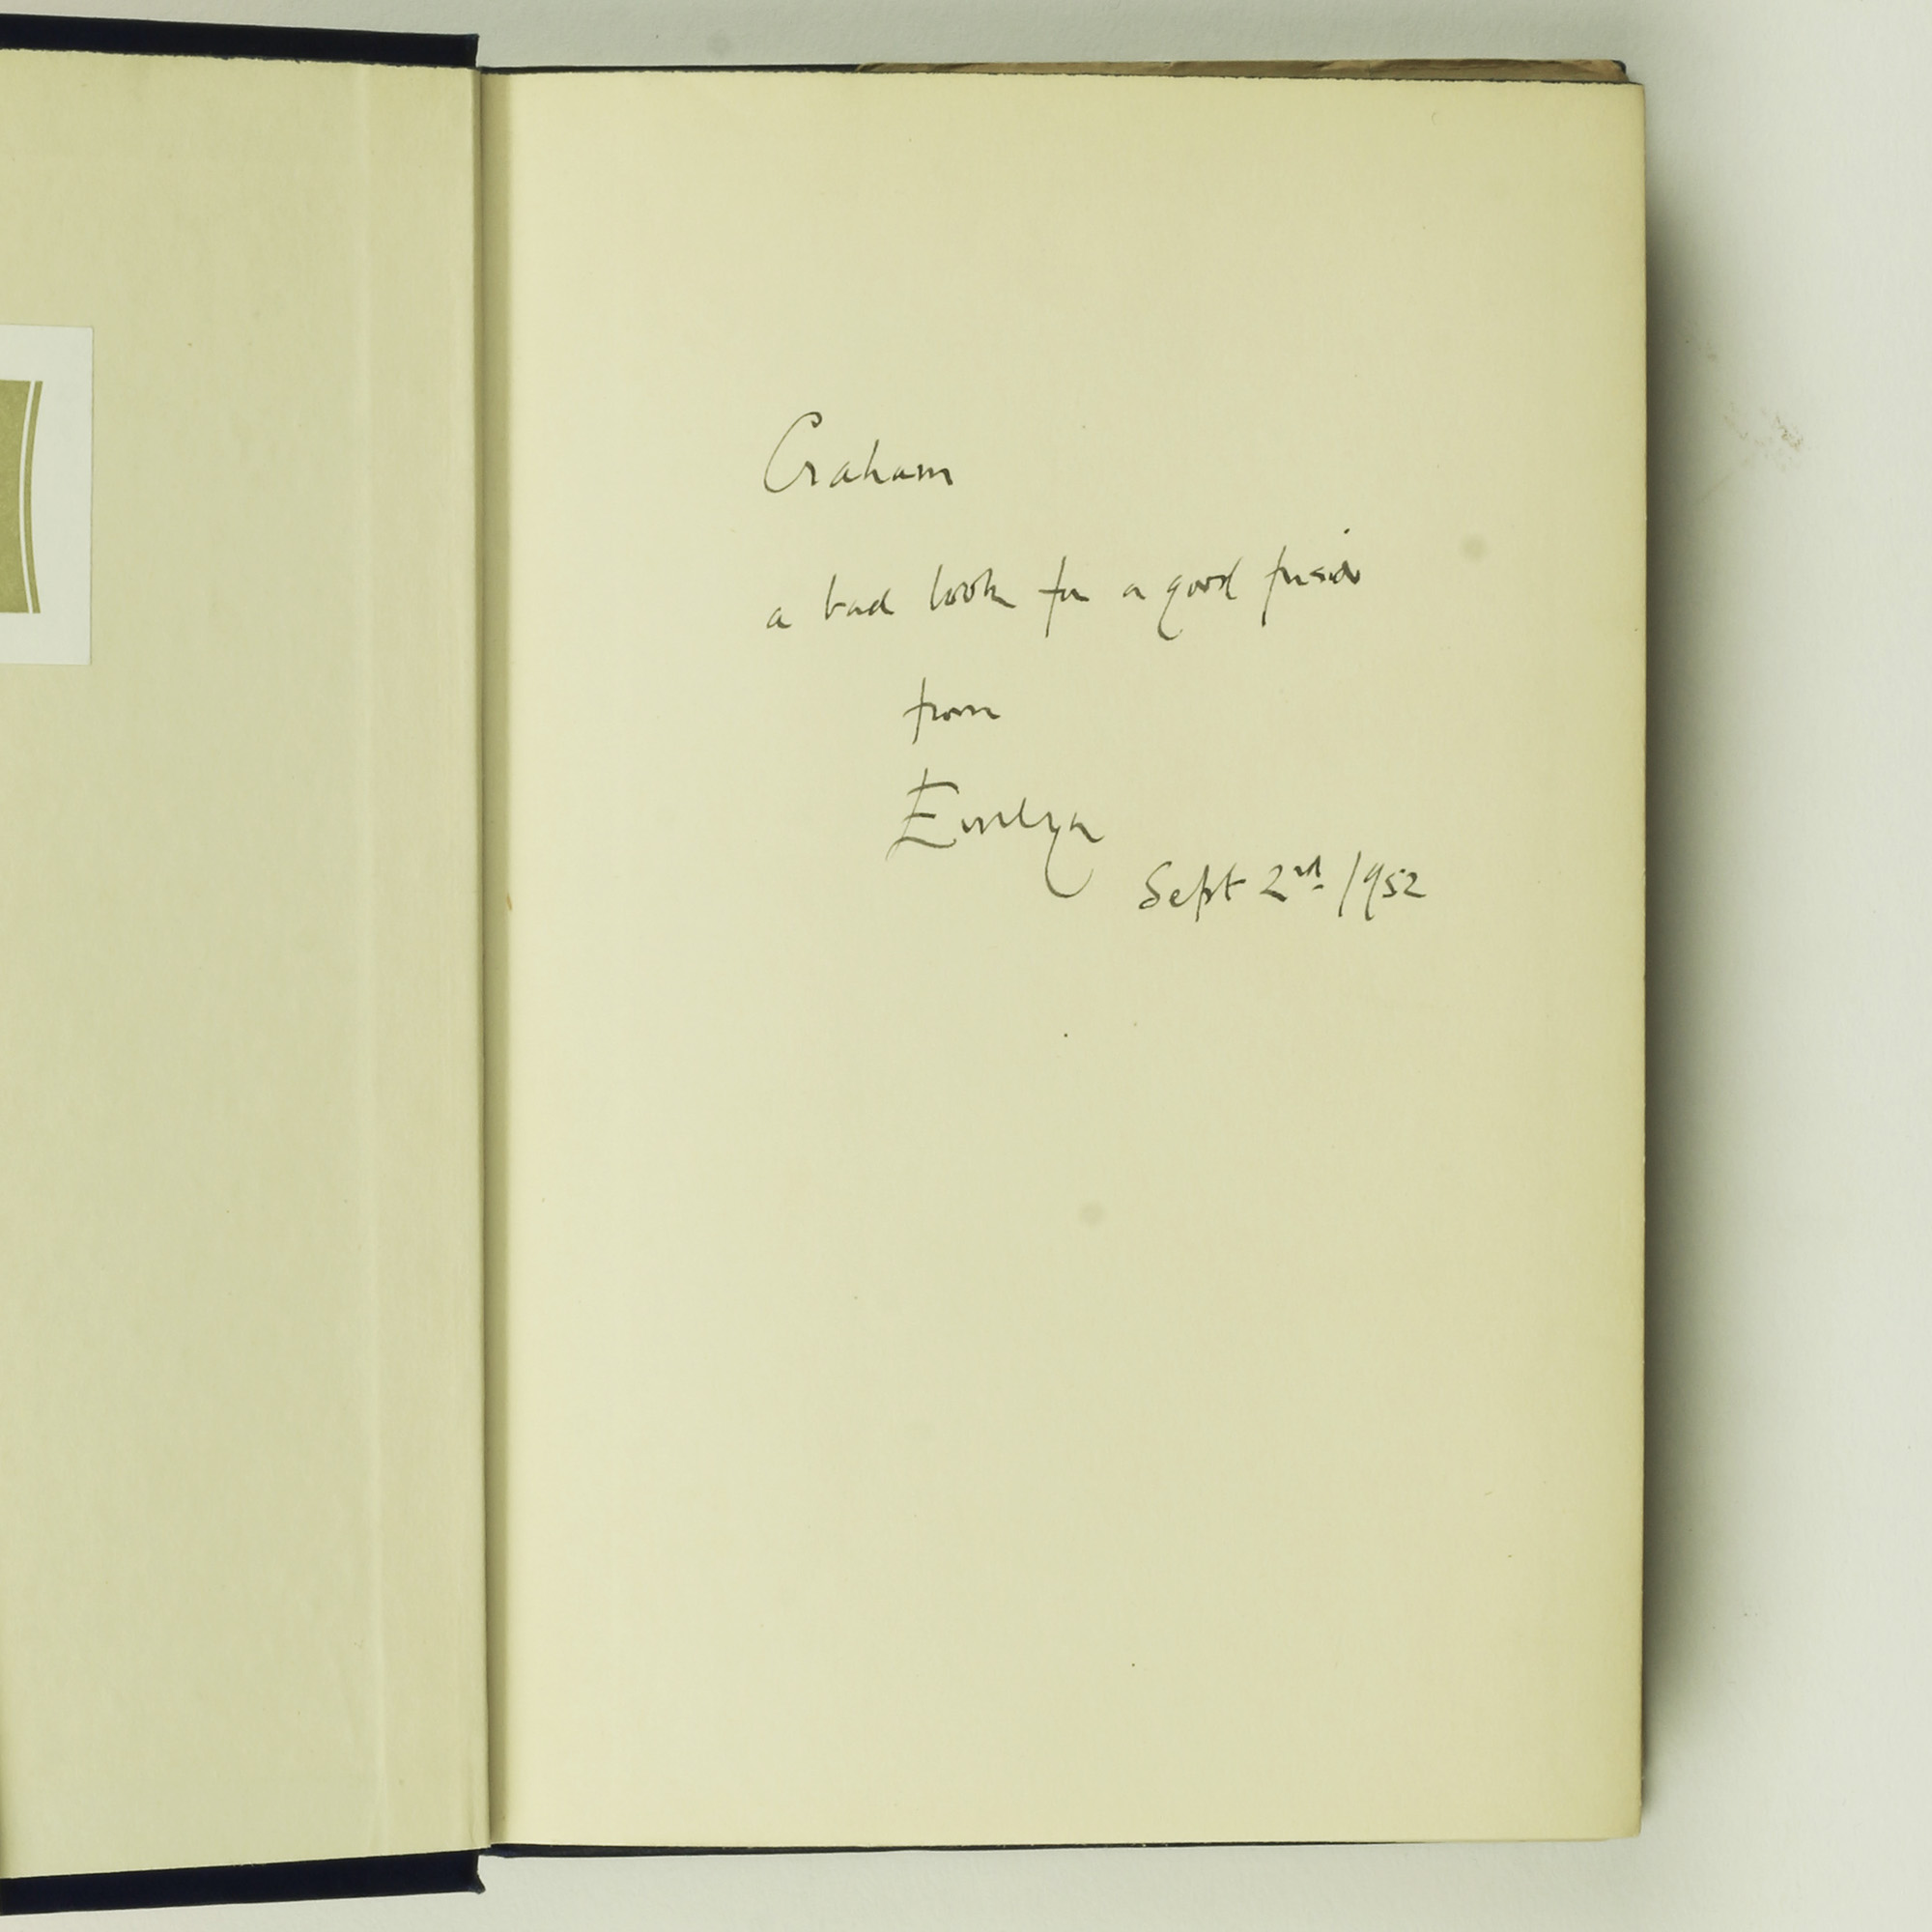 Graham
a bad book for a good friend
from
Evelyn
Sept 2nd 1952